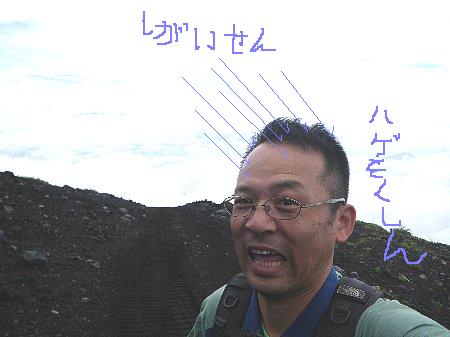 しがいせん
ハゲもくしん